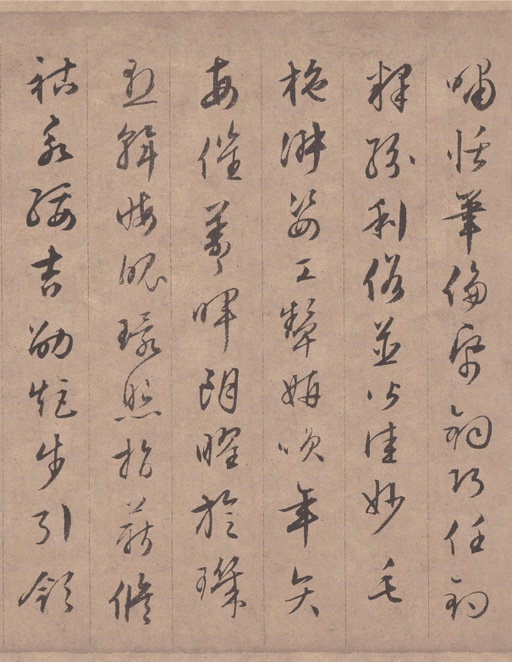 嘯恬筆倫帋鈞巧任釣
釋紛利俗並皆佳妙毛
施淑姿工顰妍咲年矢
每催羲暉朗曜旋璣
懸斡晦魄環照指薪脩
祜永綏吉劭矩步引領